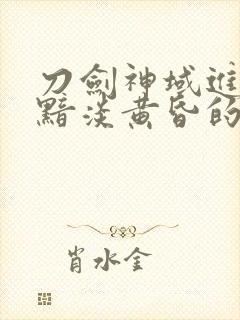 刀劍神域進
黯淡黃昏的
肖水金